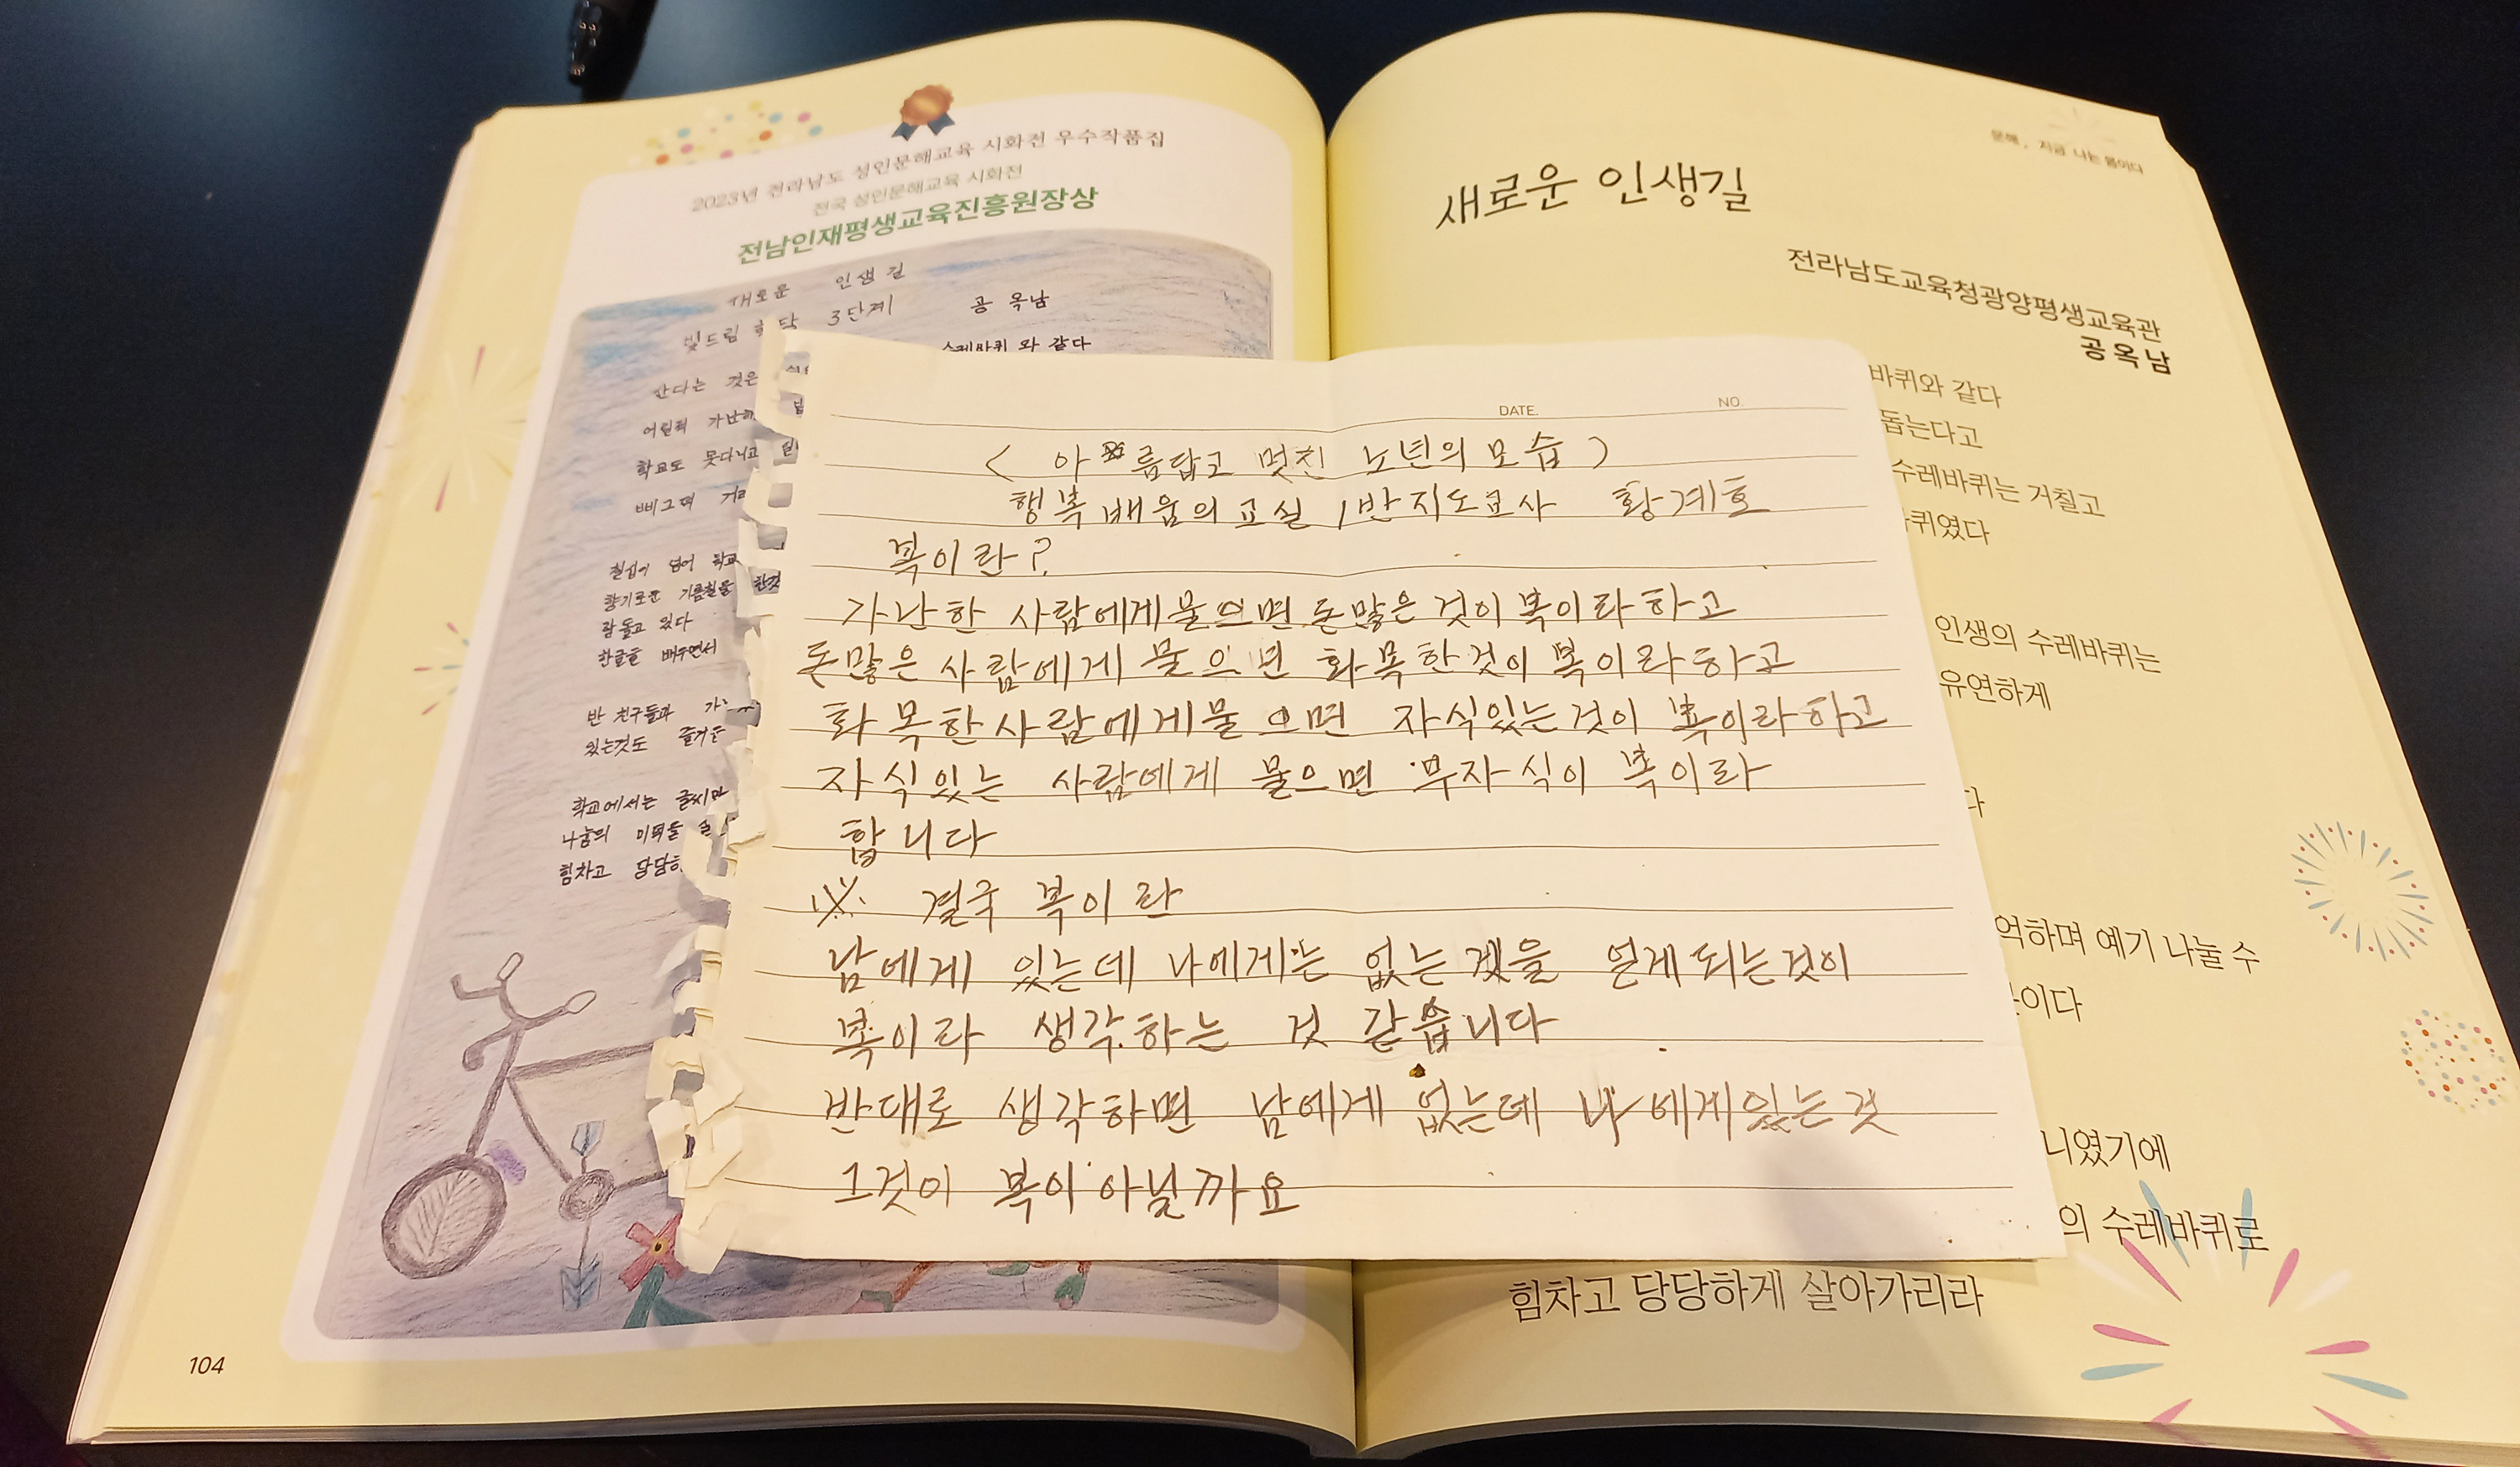 2023년 전라남도 성인문해교육 시화전 우수작품집
전국 성인문해교육 시화전
전남인재평생교육진흥원장상
새로운 인생길
빛드림 학당 3단계 공옥남
산다는 것은
수레바퀴 와 같다
어릴적 가난해
학교도 못다니고
삐그덕 거려
칠십이 넘어 학교
향기로운 기름칠을 한것
람 돌고 있다
한글을 배우면서
반 친구들과
있는것도 즐거운
학교에서는 글씨만
나눔의 미덕을
힘차고 당당하
104
문해, 지금 나는 봄이다
새로운 인생길
전라남도교육청광양평생교육관
공옥남
바퀴와 같다
돕는다고
수레바퀴는 거칠고
퀴였다
인생의 수레바퀴는
유연하게
다
억하며 예기 나눌 수
이다
니였기에
의 수레바퀴로
힘차고 당당하게 살아가리라
DATE. NO.
< 아름답고 멋친 노년의 모습 >
행복배움의교실 1반지도교사 황계호
복이란?
가난한 사람에게물으면 돈많은 것이 복이라하고
돈많은 사람에게 물으면 화목한것이 복이라하고
화목한사람에게물으면 자식있는것이 복이라하고
자식있는 사람에게 물으면 무자식이 복이라
합니다
※ 결국 복이란
남에게 있는데 나에게는 없는것을 얻게되는것이
복이라 생각하는 것 같습니다
반대로 생각하면 남에게 없는데 나에게있는것
그것이 복이아닐까요